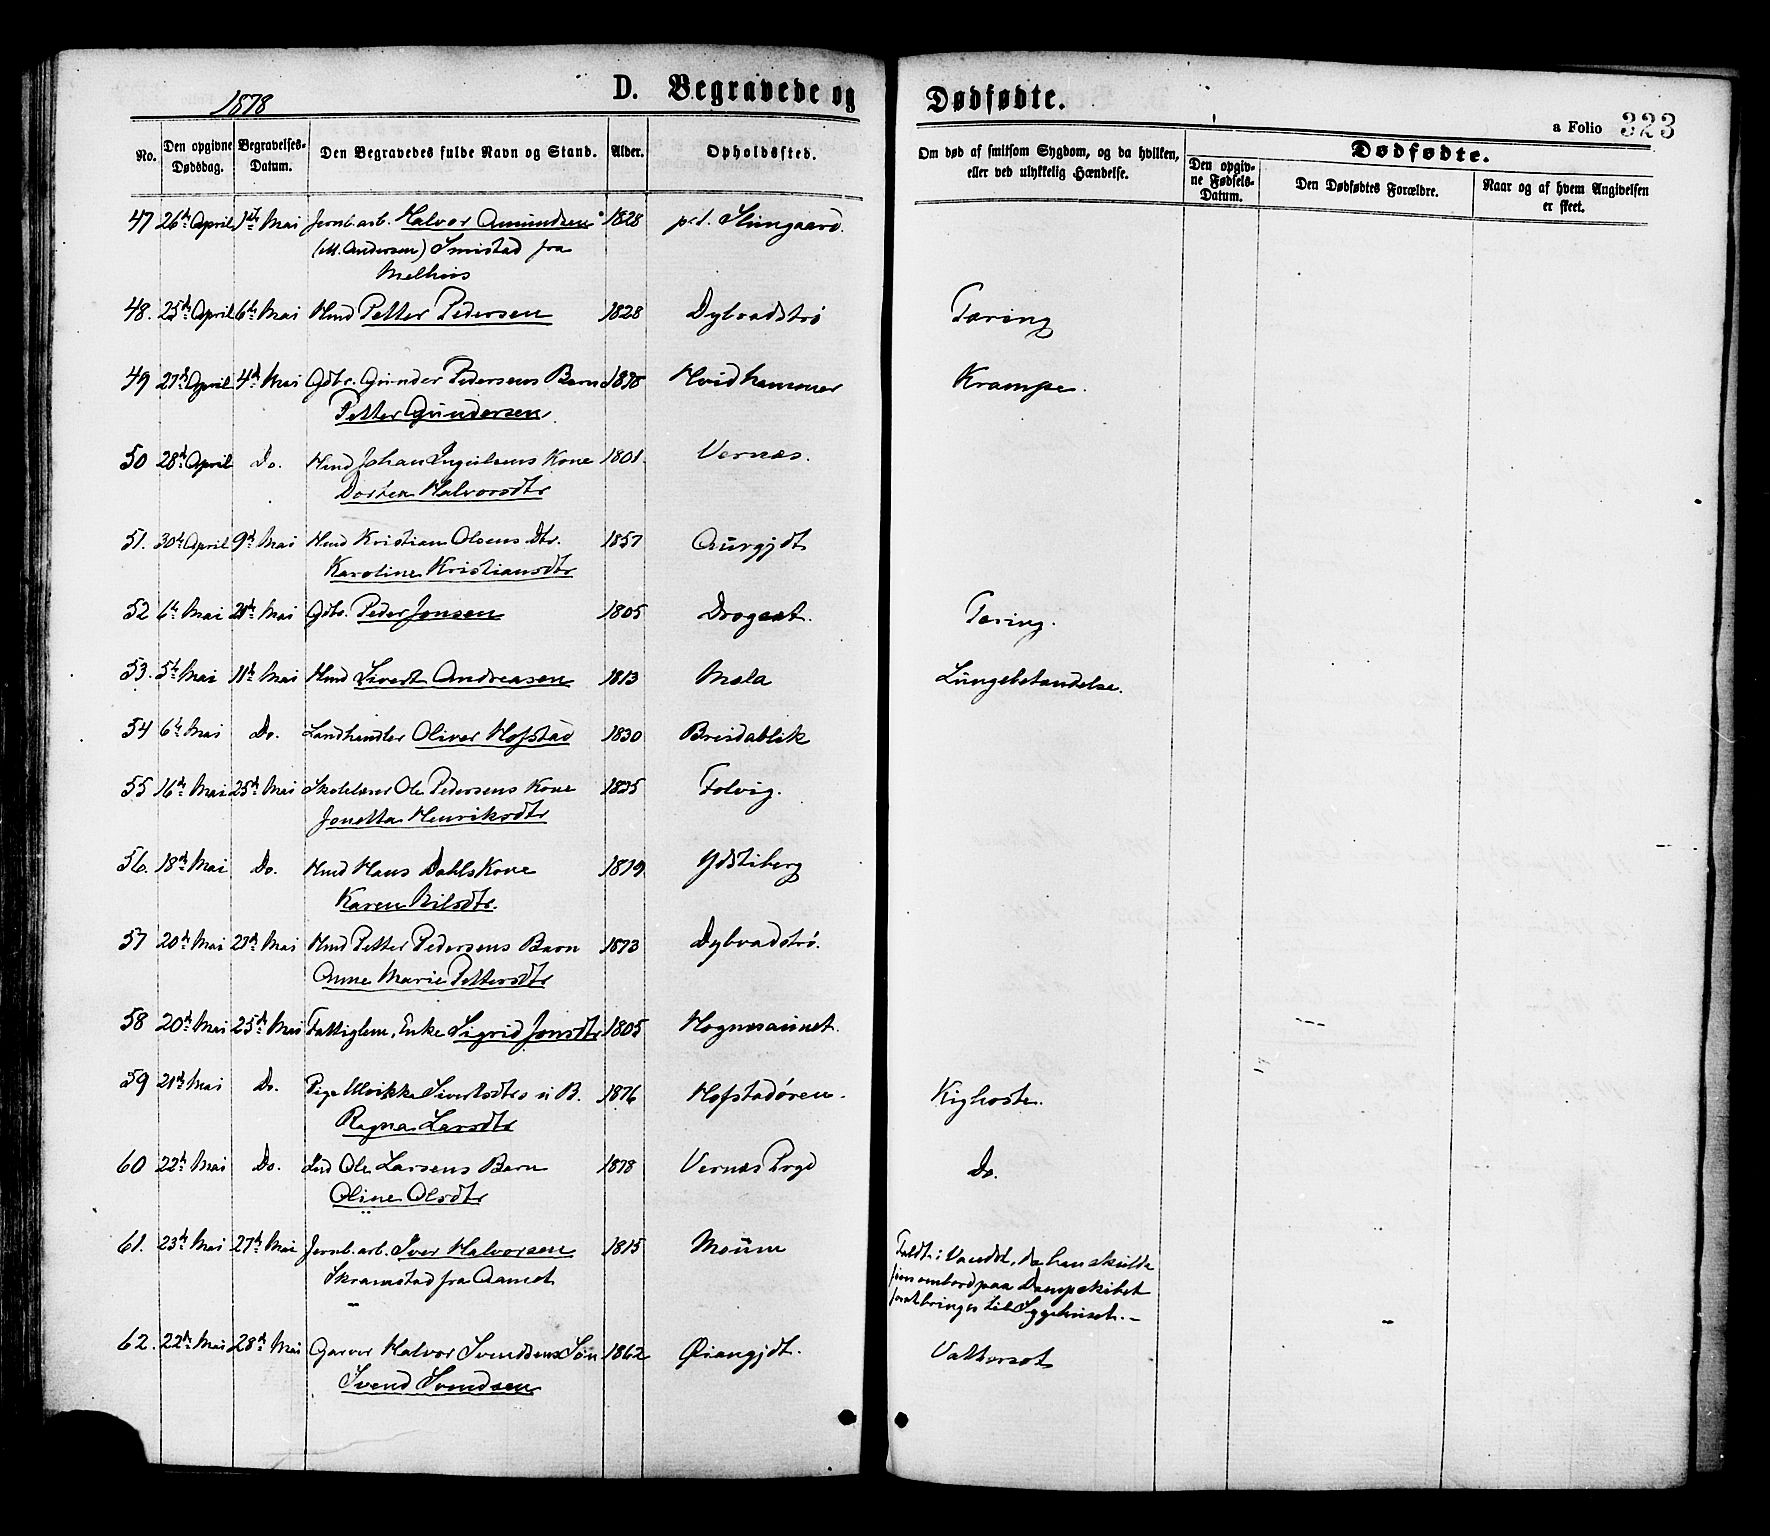 1878
D. Begravede og Dødfødte.
a Folio 323
No. Den opgivne Dødsdag. Begravelses-Datum. Den Begravedes fulde Navn og Stand. Alder. Opholdssted. Om død af smitsom Sygdom, og da hvilken, eller ved ulykkelig Hændelse. Den opgivne Fødsels-Datum. Dødfødte. Den Dødfødtes Forældre. Naar og af hvem Angivelsen er skeet.
47 26de April 1ste Mai Jernb.arb. Halvor Amundsen 1828 p.t. Stingaard.
(M. Andersen) Smistad fra
Melhus
48. 25de April 6te Mai Hmd Petter Pedersen 1828 Dybvadstrø Tæring
49 27de April 4de Mai Gdbr. Gunder Pedersens Barn 1878 Hvidhammer Krampe.
Petter Gundersen
50 28de April Do. Hmd Johan Ingulsens Kone 1801 Vernæs.
Dortea Halvorsdtr
51. 30te April 9de Mai Hmd Kristian Olsens Dtr. 1857 Aurgjdt
Karoline Kristiansdtr
52 6te Mai 20de Mai Gdbr. Peder Jonsen 1805 Drogset. Tæring.
53. 5te Mai 11te Mai Hmd Sivert Andreasen 1813 Mæla Lungebetændelse.
54 6te Mai Do. Landhandler Oliver Hofstad 1830 Breidablik
55 16de Mai 25de Mai Skolelærer Ole Pedersens Kone 1835 Folvig.
Jonetta Henriksdtr
56. 18de Mai Do. Hmd Hans Dahls Kone 1819 Ydstiberg
Karen Nilsdtr.
57 20de Mai 27de Mai Hmd Petter Pedersens Barn 1873 Dybvadstrø.
Anne Marie Pettersdtr
58 20de Mai 25de Mai Fattiglem, Enke Sigrid Jonsdtr 1805 Hognesaunet.
59 21de Mai Do. Pige Ulrikke Sivertsdtrs u. B. 1876 Hofstadøren. Kighoste.
Ragna Larsdtr
60 22de Mai Do. Ole Larsens Barn 1878 Vernæs Prgd Do.
Oline Olsdtr
61. 23de Mai 27de Mai Jernb.arb. Iver Halvorsen 1815 Moum Faldt i Vandet, da han skulde
Skramstad fra Aamot ombord paa Dampskibet
for at bringes til Sygehuset. –
62. 22de Mai 28de Mai Garver Halvor Svendsens Søn 1862 Øiangjdt. Vattersot
Svend Svendsen